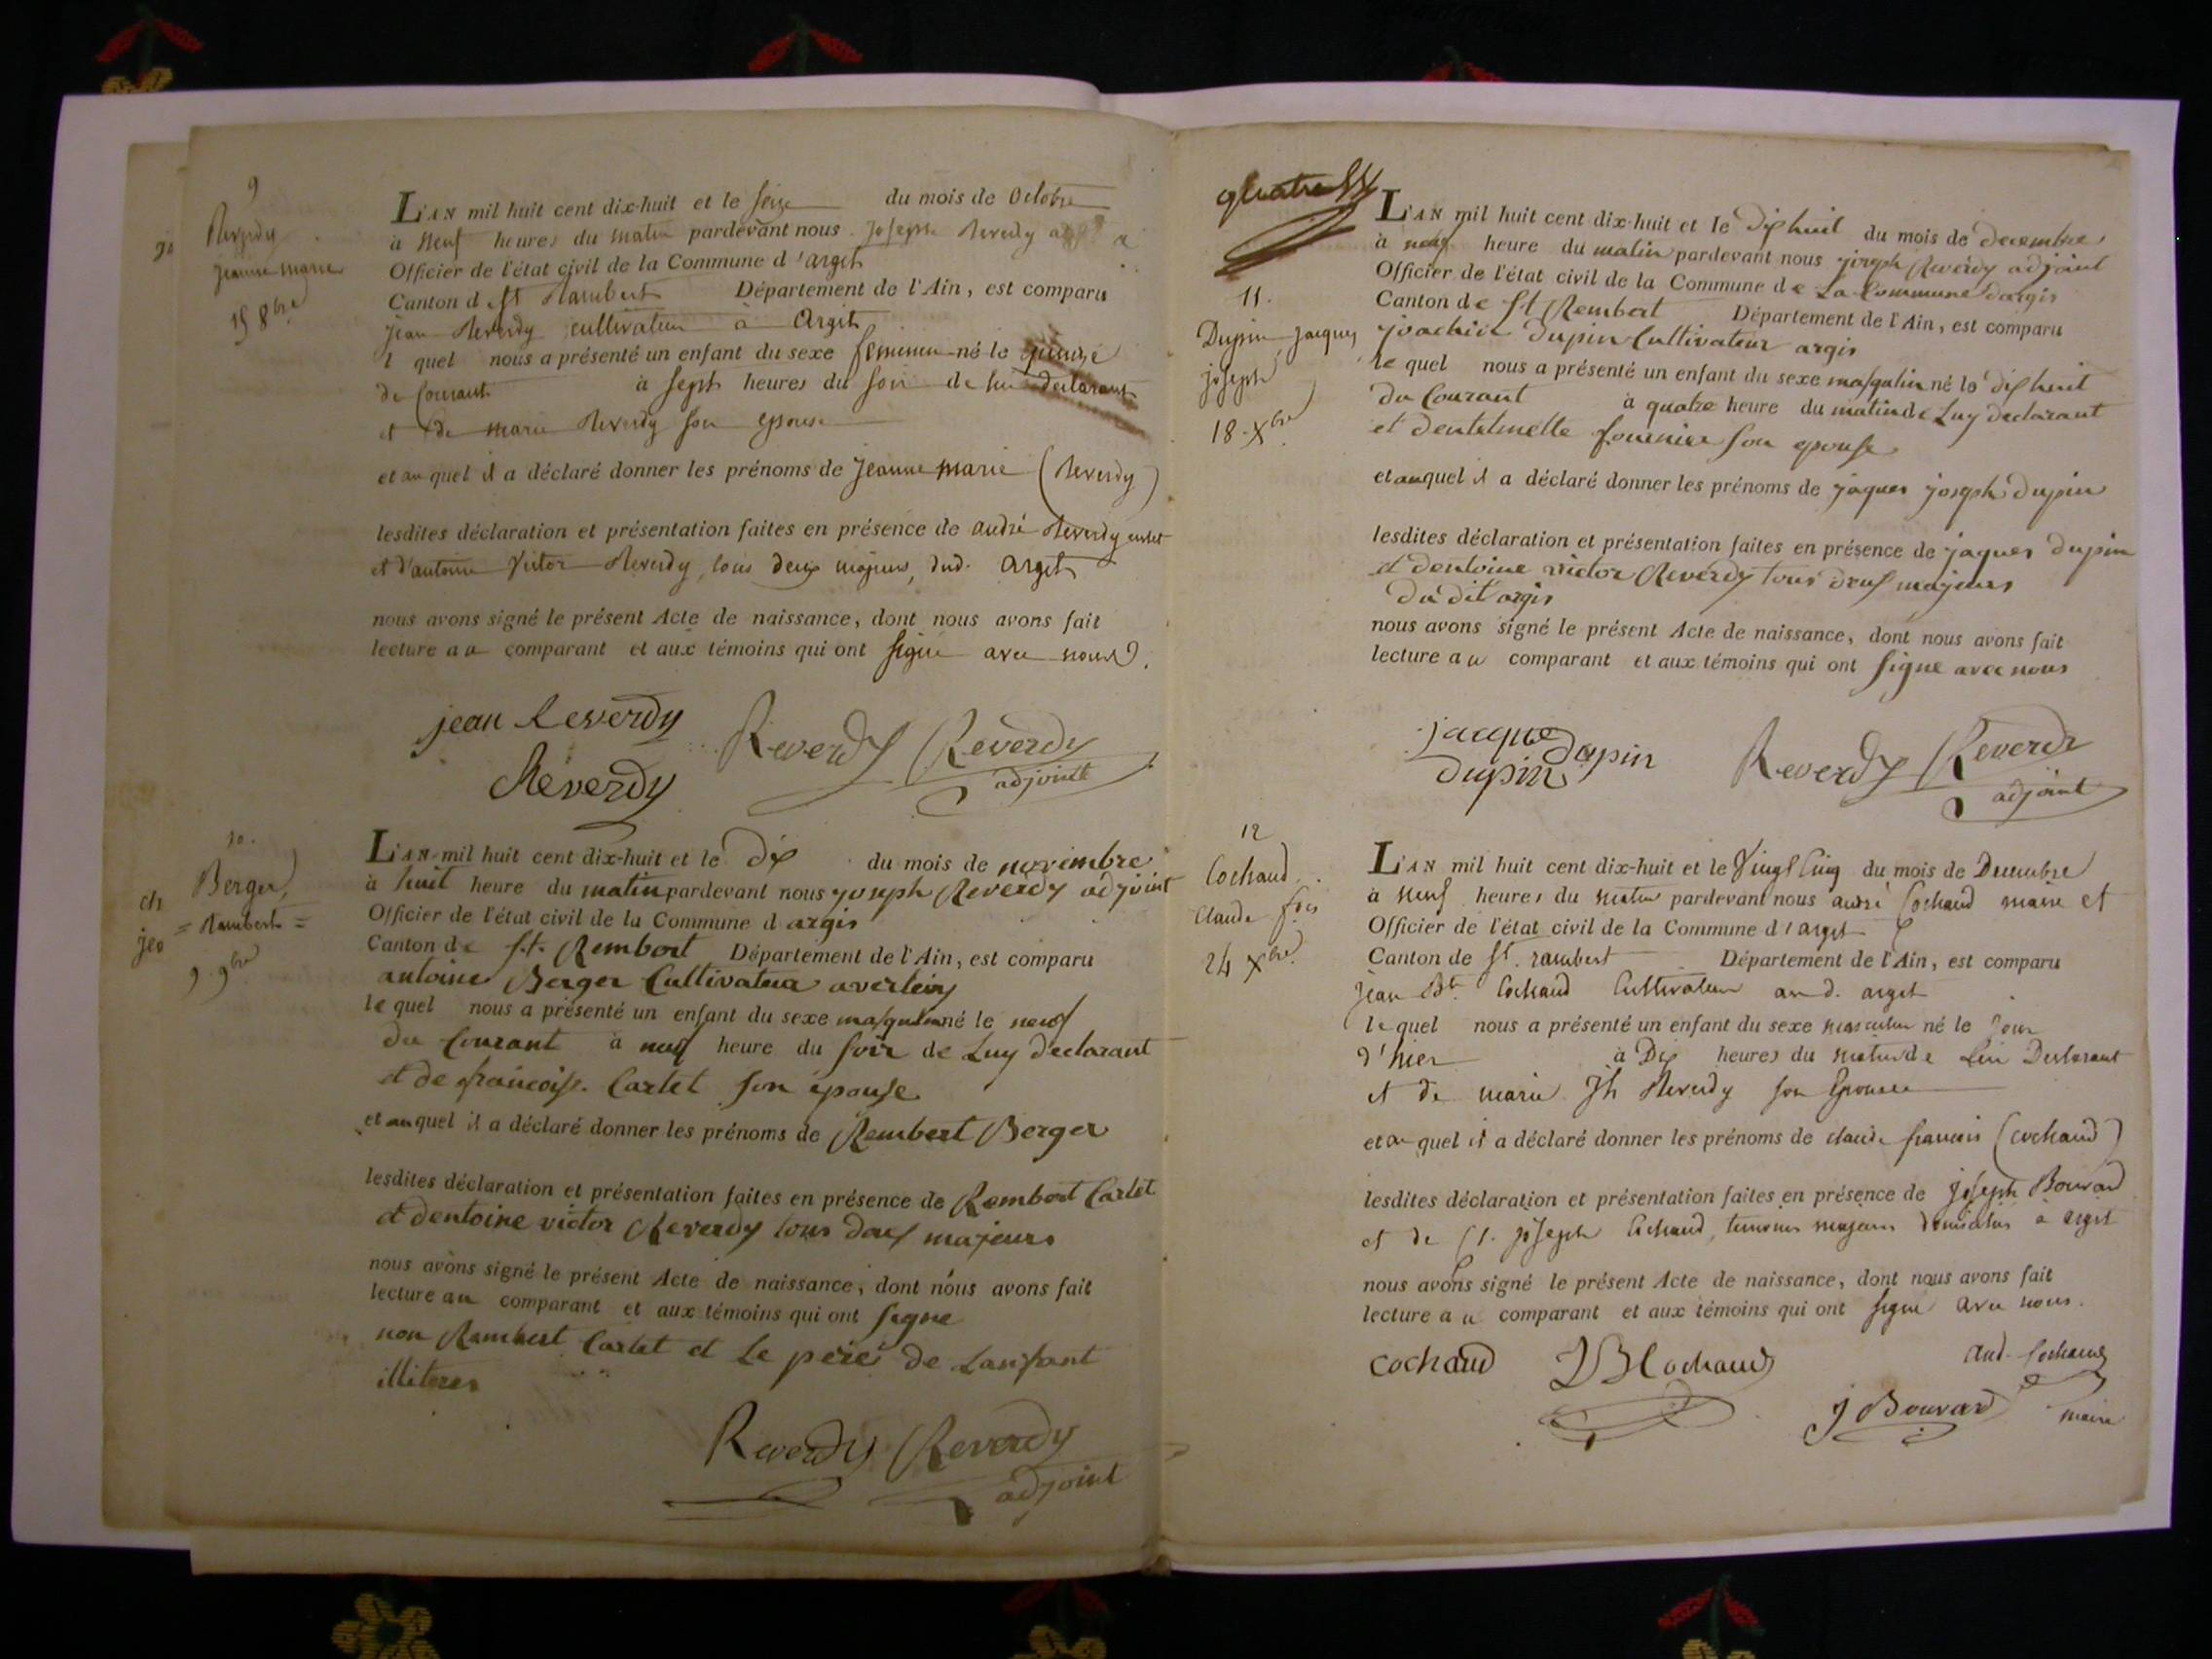 9
Reverdy
jeanne marie
15 8bre
L'AN mil huit cent dix-huit et le seize du mois de Octobre
à neuf heures du matin pardevant nous Joseph Reverdy
Officier de l'état civil de la Commune d'argit
Canton de St Rambert Département de l'Ain, est comparu
jean Reverdy cultivateur à Argit
l quel nous a présenté un enfant du sexe feminin né le quinze
du Courant à sept heures du soir de lui declarant
et de marie Reverdy son epouse
et au quel il a déclaré donner les prénoms de Jeanne marie (Reverdy)
lesdites déclaration et présentation faites en présence de andré Reverdy
et d'antoine Victor Reverdy, tous deux majeurs, dud. Argit
nous avons signé le présent Acte de naissance, dont nous avons fait
lecture au comparant et aux témoins qui ont signé avec nous.
jean Reverdy Reverdy Reverdy
Reverdy adjoint
10.
Berger
= Rambert =
9 9bre
ch
jeo
L'AN mil huit cent dix-huit et le dix du mois de novembre
à huit heure du matin pardevant nous joseph Reverdy adjoint
Officier de l'état civil de la Commune d argis
Canton de St. Rembert Département de l'Ain, est comparu
antoine Berger Cultivateur
le quel nous a présenté un enfant du sexe masqulin né le neuf
du Courant à neuf heure du soir de Luy declarant
et de francoise Cartet son epouse
et au quel il a déclaré donner les prénoms de Rembert Berger
lesdites déclaration et présentation faites en présence de Rembert Cartet
et dentoine victor Reverdy tous deux majeurs
nous avons signé le présent Acte de naissance, dont nous avons fait
lecture au comparant et aux témoins qui ont signe
non Rambert Cartet et Le pere de Lanfant
illiteres
Reverdy Reverdy
adjoint
quatre
11.
Dupin Jacques
joseph
18 Xbre
L'AN mil huit cent dix-huit et le dix huit du mois de decembre
à neuf heure du matin pardevant nous joseph Reverdy adjoint
Officier de l'état civil de la Commune de La Commune dargis
Canton de St Rembert Département de l'Ain, est comparu
joachin Dupin Cultivateur argis
le quel nous a présenté un enfant du sexe masqulin né le dix huit
du Courant à quatre heure du matin de Luy declarant
et dentelmette fournier son epouse
et au quel il a déclaré donner les prénoms de jaques joseph dupin
lesdites déclaration et présentation faites en présence de jaques dupin
et dentoine victor Reverdy tous deux majeurs
du dit argis
nous avons signé le présent Acte de naissance, dont nous avons fait
lecture au comparant et aux témoins qui ont signe avec nous
jacque dapin Reverdy Reverdy
dupin adjoint
12
Cochaud
Claude fois
24 Xbre
L'AN mil huit cent dix-huit et le Vingt Cinq du mois de Decembre
à neuf heures du matin pardevant nous andré Cochaud maire et
Officier de l'état civil de la Commune d'argit
Canton de St. rambert Département de l'Ain, est comparu
Jean Bte Cochaud Cultivateur aud. argit
le quel nous a présenté un enfant du sexe masculin né le jour
d'hier à Dix heures du matin de lui Declarant
et de marie Jh Reverdy son Epouse
et au quel il a déclaré donner les prénoms de claude francois (cochaud)
lesdites déclaration et présentation faites en présence de joseph Bouvard
et de Cl. joseph Cochaud, temoins majeurs domiciliés à argit
nous avons signé le présent Acte de naissance, dont nous avons fait
lecture au comparant et aux témoins qui ont signé avec nous.
cochaud JB Cochaud And. Cochaud
J Bouvard maire